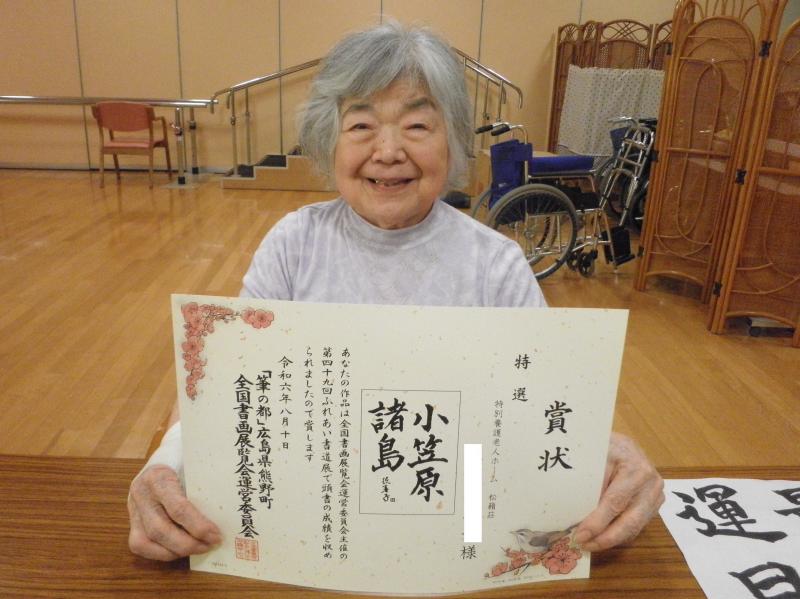 賞状
特選
特別養護老人ホーム 松籟荘
様
小笠原
諸島
あなたの作品は全国書画展覧会運営委員会主催の
第四十九回ふれあい書道展で頭書の成績を収め
られましたので賞します
令和六年八月十日
「筆の都」広島県熊野町
全国書画展覧会運営委員会
運
日